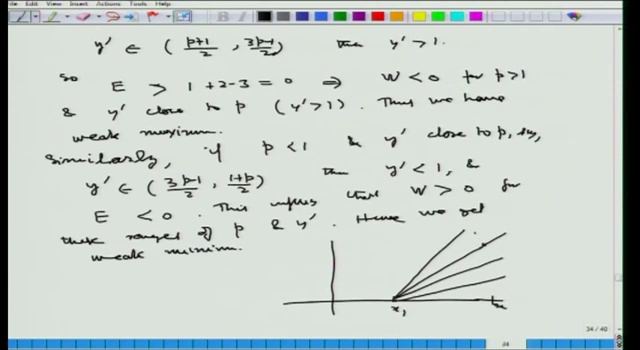 File View Insert Actions Tools Help
y' ∈ ( p+1/2 , 3p-1/2 ) then y' > 1.
so E > 1+2-3 = 0 ⇒ W < 0 for p>1
& y' close to p (y'>1). Thus we have
weak maximum.
Similarly, if p < 1 & y' close to p, say,
y' ∈ ( 3p-1/2 , 1+p/2 ) then y' < 1, &
E < 0. This implies that W > 0 for
these ranges of p & y'. Hence we get
weak minimum.
x₁
34 / 40
34